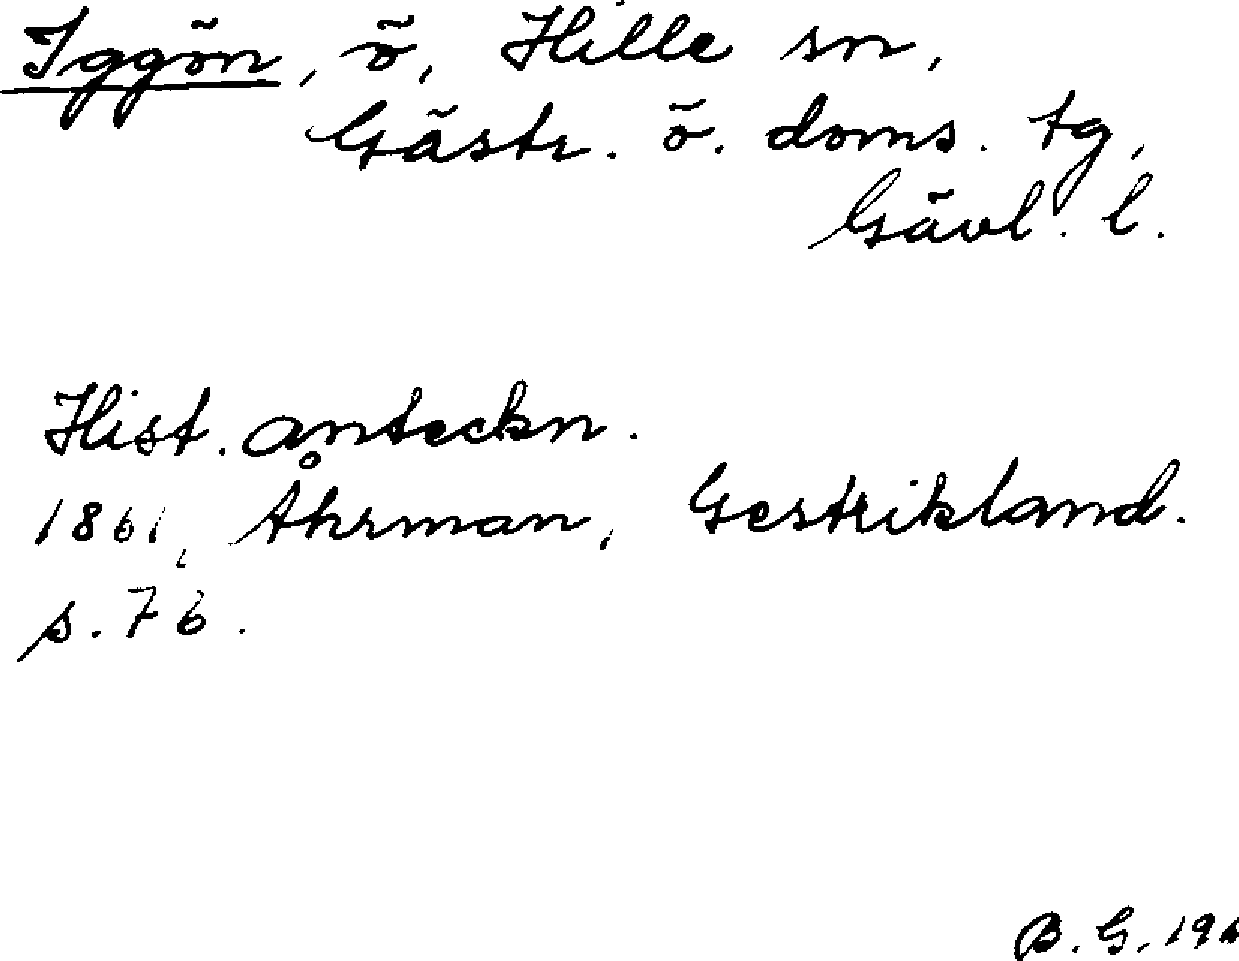 Iggön, ö, Hille sn,
Gästr. ö. doms. tg,
Gävl. l.
Hist. anteckn.
1861, Åhrman, Gestrikland.
s. 76.
B. G.